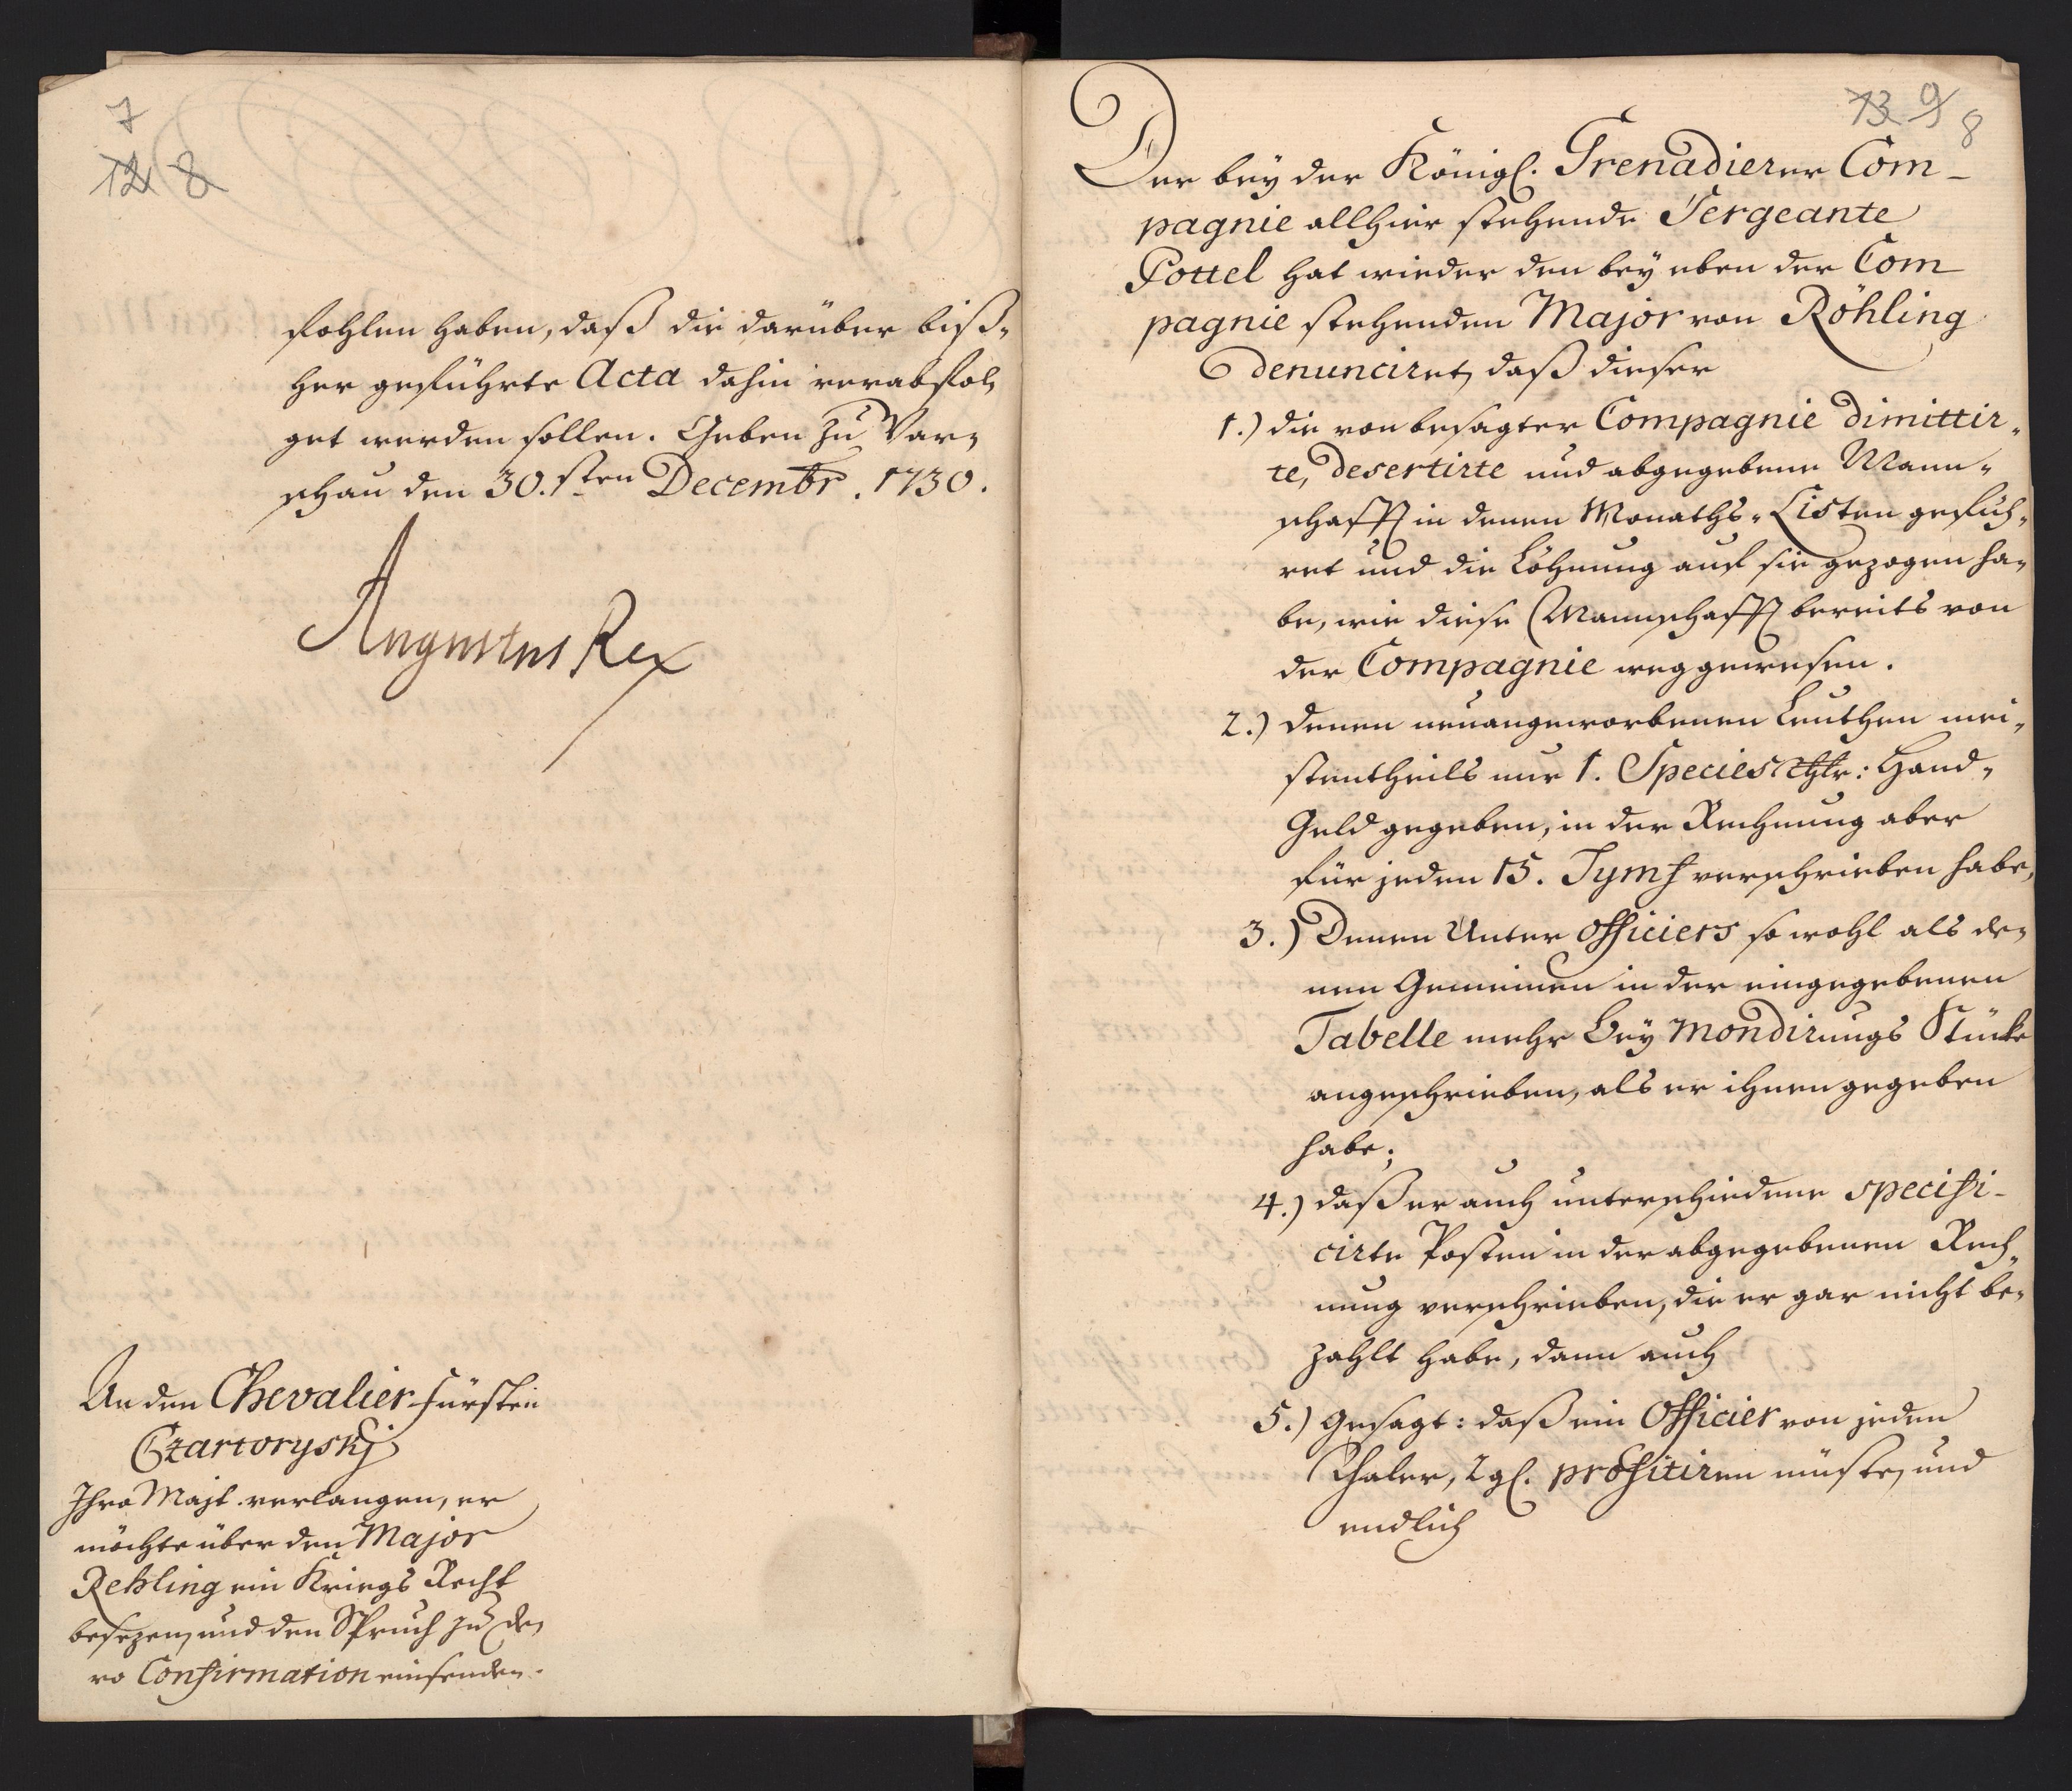 7
12 8
fohlen haben, daß die darüber biß-
her geführte Acta dahin verabfol-
get werden sollen. Geben zu War-
schau den 30.sten Decembr. 1730.
Augustus Rex
An den Chevalier Fürsten
Czartoryskj
Ihro Majt. verlangen, er
möchte über den Major
Rehling ein Kriegs Recht
besezen, und den Spruch zu De-
ro Confirmation einsenden.
13 9
8
Der bey der Königl. Grenadierer Com-
pagnie allhier stehende Sergeante
Pottel hat wieder den bey eben der Com
pagnie stehenden Major von Röhling
denunciret, daß dieser
1.) die von besagter Compagnie dimittir-
te, desertirte und abgegebene Mann-
schafft in denen Monaths-Listen gefüh-
ret und die Löhnung auf sie gezogen ha-
be, wie diese Mannschafft bereits von
der Compagnie weggewesen.
2.) denen neuangeworbenen Leuthen mei-
stentheils nur 1. Species Thlr: Hand-
Geld gegeben, in der Rechnung aber
für jeden 15. Tymf verschrieben habe,
3.) Denen Unter officiers so wohl als de-
nen Gemeinen in der eingegebenen
Tabelle mehr Bey Mondirungs Stücke
angeschrieben, als er ihnen gegeben
habe;
4.) daß er auch unterschiedene specifi-
cirte Posten in der abgegebenen Rech-
nung verschrieben, die er gar nicht be-
zahlt habe, dann auch
5.) gesagt: daß ein Officier von jeden
Thaler, 2 gl. profitiren müste, und
endlich